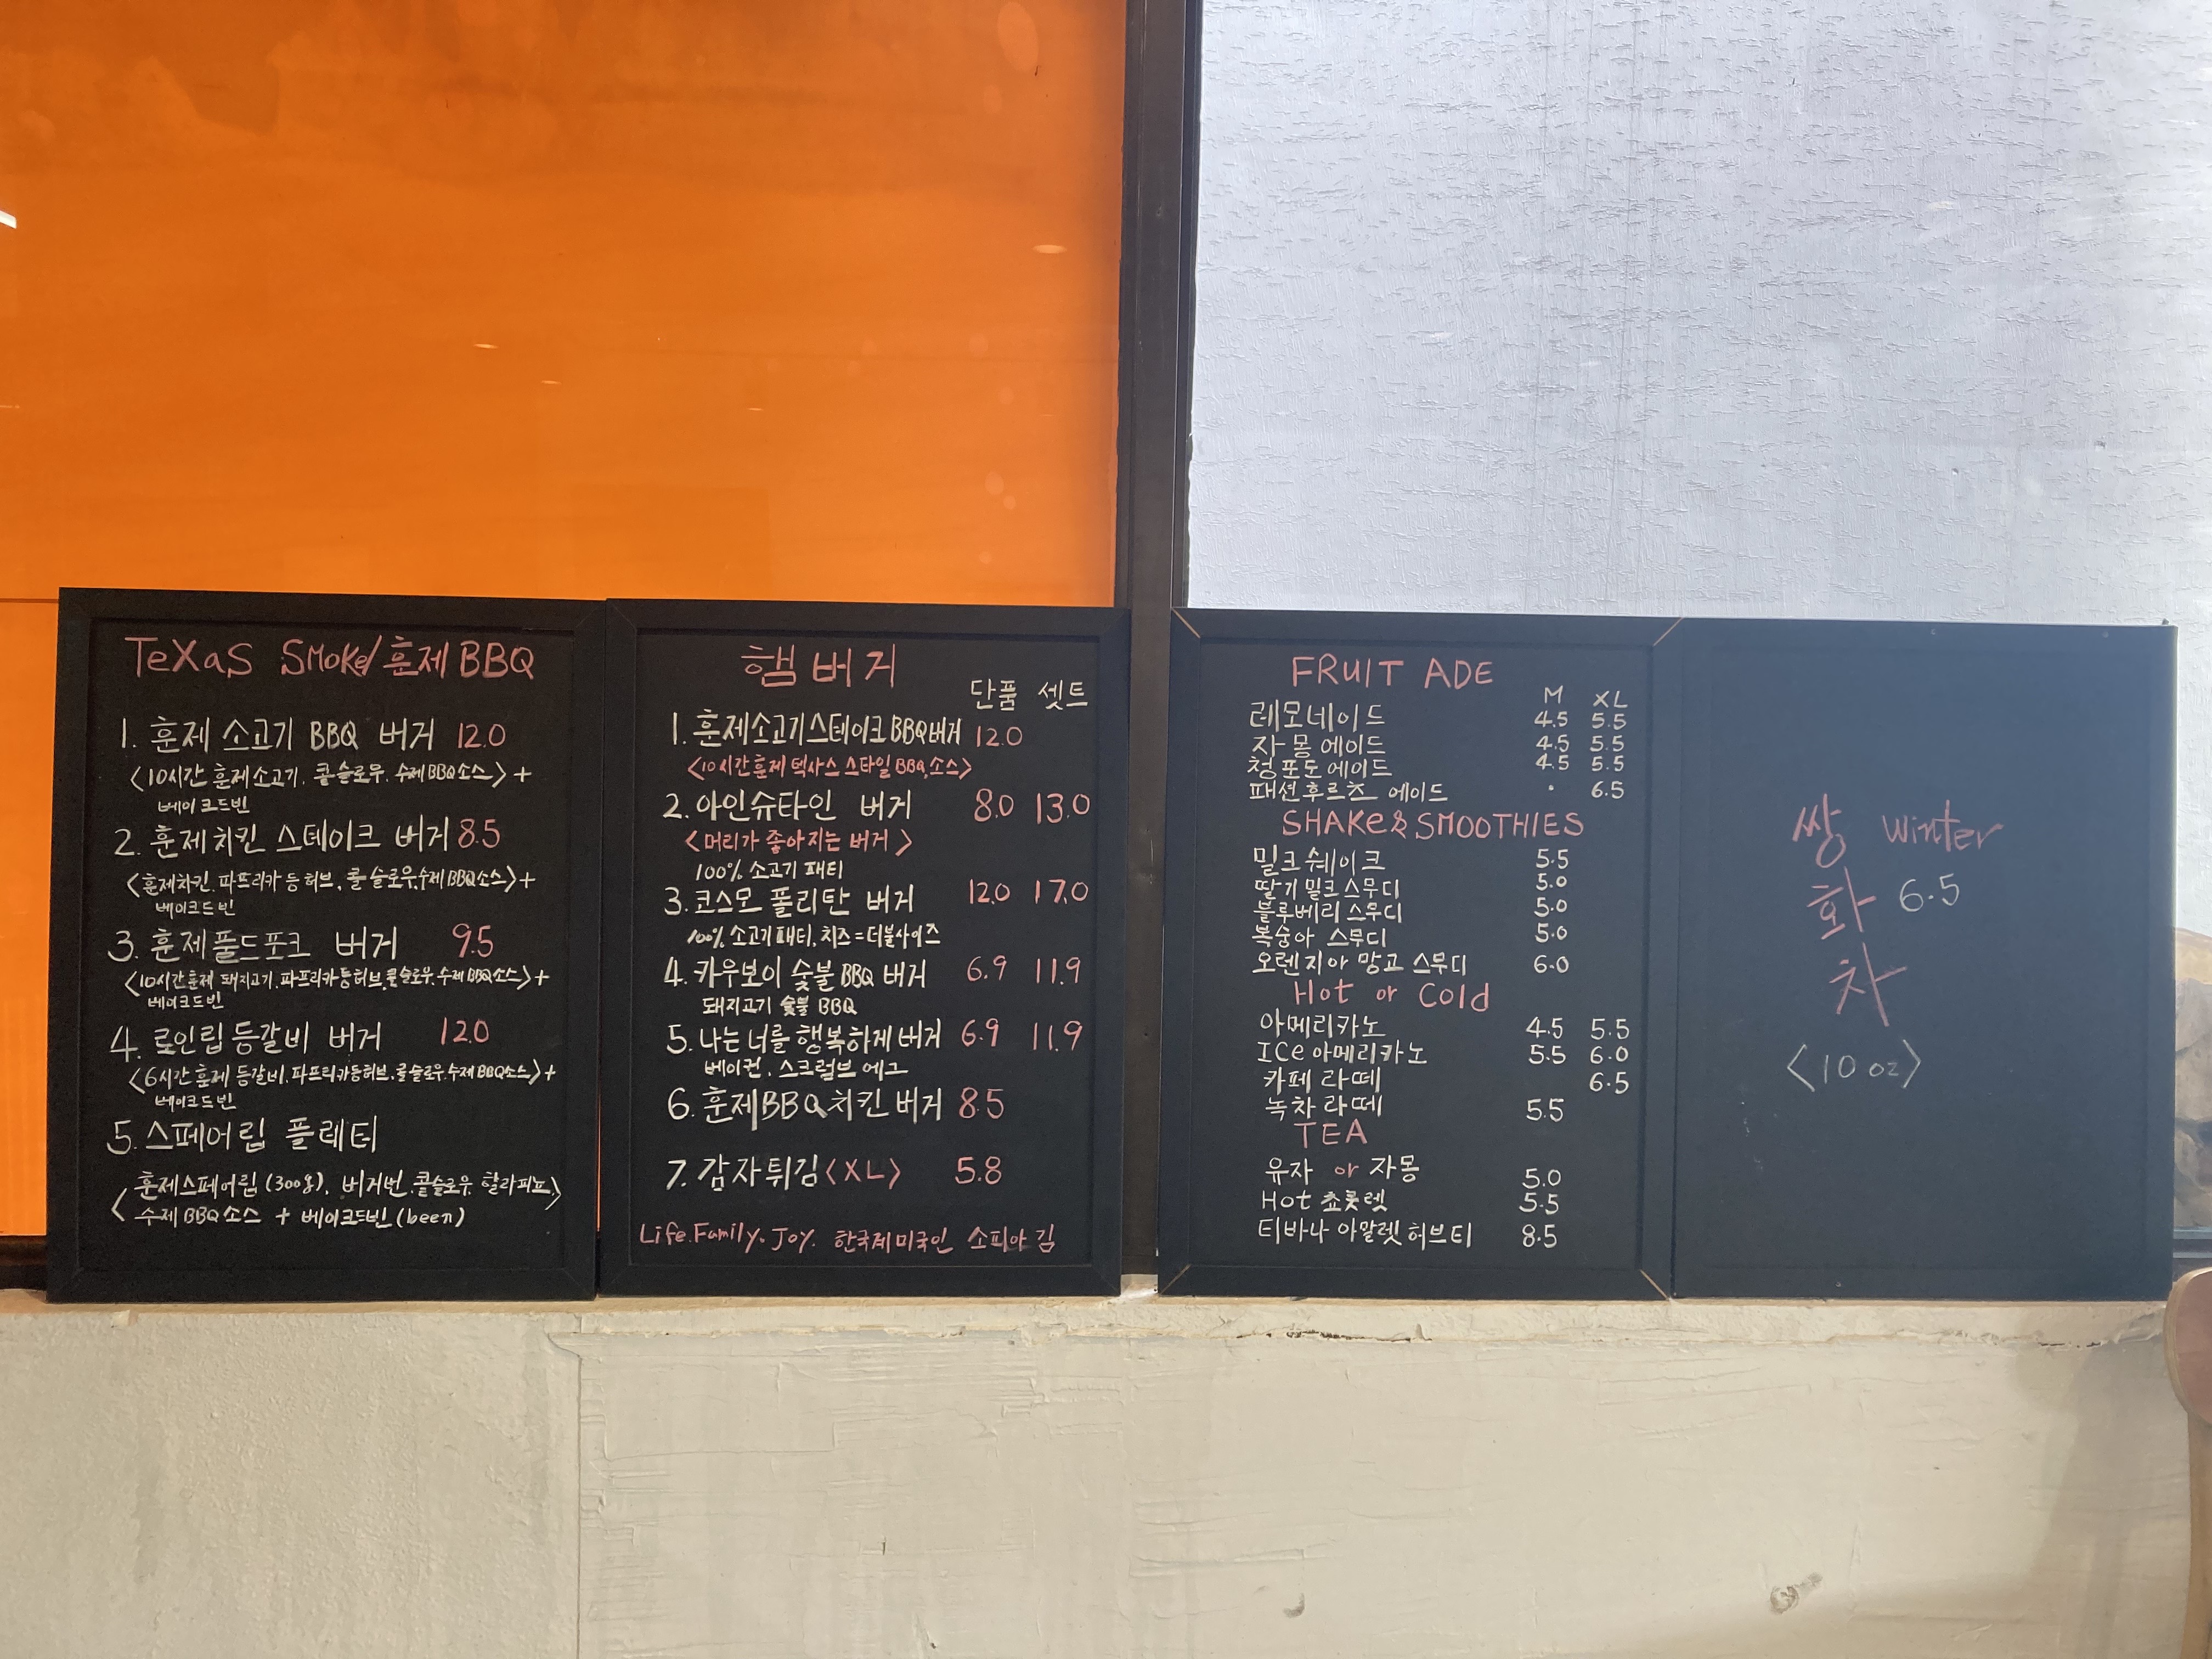 TeXaS SMoKe/훈제 BBQ
1. 훈제 소고기 BBQ 버거 12.0
<10시간 훈제소고기. 콜슬로우. 수제BBQ소스>+
베이크드빈
2. 훈제치킨 스테이크 버거 8.5
<훈제치킨. 파프리카 등 허브. 콜슬로우.수제BBQ소스>+
베이크드빈
3. 훈제풀드포크 버거 9.5
<10시간훈제 돼지고기. 파프리카등허브.콜슬로우.수제 BBQ소스>+
베이크드빈
4. 로인립등갈비 버거 12.0
<6시간 훈제 등갈비. 파프리카등허브.콜슬로우.수제 BBQ소스>+
베이크드빈
5. 스페어립 플레터
<훈제스페어립(300g). 버거번.콜슬로우. 할라피뇨.>
수제 BBQ소스 + 베이크드빈(been)
햄버거
단품 셋트
1. 훈제소고기스테이크BBQ버거 12.0
<10시간훈제 텍사스 스타일 BBQ.소스>
2. 아인슈타인 버거 8.0 13.0
<머리가 좋아지는 버거>
100% 소고기 패티
3. 코스모 폴리탄 버거 12.0 17.0
100% 소고기패티, 치즈=더블사이즈
4. 카우보이 숯불 BBQ 버거 6.9 11.9
돼지고기 숯불 BBQ
5. 나는 너를 행복하게 버거 6.9 11.9
베이컨. 스크럼브 에그
6. 훈제BBQ치킨버거 8.5
7. 감자튀김<XL> 5.8
Life.Family.Joy. 한국제미국인 소피아 김
FRUIT ADE
M XL
레모네이드 4.5 5.5
자몽에이드 4.5 5.5
청포도에이드 4.5 5.5
패션후르츠 에이드 · 6.5
SHAKe&SMOOTHIES
밀크쉐이크 5.5
딸기밀크스무디 5.0
블루베리스무디 5.0
복숭아 스무디 5.0
오렌지아 망고 스무디 6.0
Hot or Cold
아메리카노 4.5 5.5
ICe아메리카노 5.5 6.0
카페 라떼 6.5
녹차 라떼 5.5
TEA
유자 or 자몽 5.0
Hot 쵸롯렛 5.5
티바나 아말렛허브티 8.5
쌍화차 winter
6.5
<10 oz>